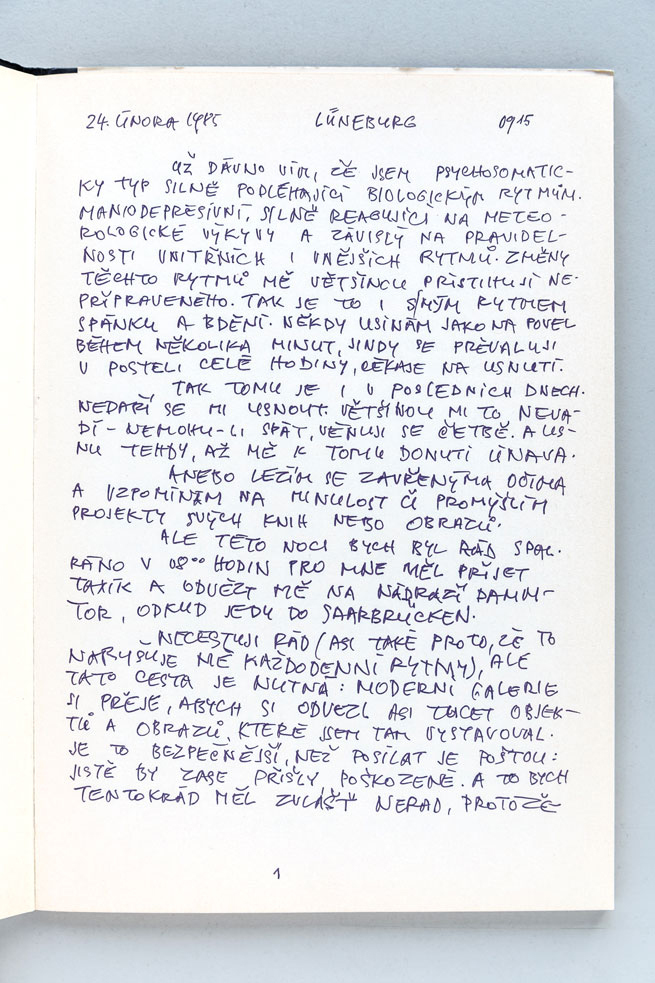 24. ÚNORA 1985 LÜNEBURG 0915
UŽ DÁVNO VÍM, ŽE JSEM PSYCHOSOMATIC-
KÝ TYP SILNĚ PODLÉHAJÍCÍ BIOLOGICKÝM RYTMŮM.
MANIODEPRESIVNÍ, SILNĚ REAGUJÍCÍ NA METEO-
ROLOGICKÉ VÝKYVY A ZÁVISLÝ NA PRAVIDEL-
NOSTI VNITŘNÍCH I VNĚJŠÍCH RYTMŮ. ZMĚNY
TĚCHTO RYTMŮ MĚ VĚTŠINOU PŘISTIHUJÍ NE-
PŘIPRAVENÉHO. TAK JE TO I S MÝM RYTMEM
SPÁNKU A BDĚNÍ. NĚKDY USÍNÁM JAKO NA POVEL
BĚHEM NĚKOLIKA MINUT, JINDY SE PŘEVALUJI
V POSTELI CELÉ HODINY, ČEKAJE NA USNUTÍ.
TAK TOMU JE I V POSLEDNÍCH DNECH.
NEDAŘÍ SE MI USNOUT. VĚTŠINOU MI TO NEVA-
DÍ - NEMOHU-LI SPÁT, VĚNUJI SE ČETBĚ. A US-
NU TEHDY, AŽ MĚ K TOMU DONUTÍ ÚNAVA.
ANEBO LEŽÍM SE ZAVŘENÝMA OČIMA
A VZPOMÍNÁM NA MINULOST ČI PROMÝŠLÍM
PROJEKTY SVÝCH KNIH NEBO OBRAZŮ.
ALE TÉTO NOCI BYCH BYL RÁD SPAL.
RÁNO V 08°° HODIN PRO MNE MĚL PŘIJET
TAXÍK A ODVÉZT MĚ NA NÁDRAŽÍ DAMM-
TOR, ODKUD JEDU DO SAARBRÜCKEN.
NECESTUJI RÁD (ASI TAKÉ PROTO, ŽE TO
NARUŠUJE MÉ KAŽDODENNÍ RYTMY), ALE
TATO CESTA JE NUTNÁ: MODERNÍ GALERIE
SI PŘEJE, ABYCH SI ODVEZL ASI TUCET OBJEK-
TŮ A OBRAZŮ, KTERÉ JSEM TAM VYSTAVOVAL.
JE TO BEZPEČNĚJŠÍ, NEŽ POSÍLAT JE POŠTOU:
JISTĚ BY ZASE PŘIŠLY POŠKOZENÉ. A TO BYCH
TENTOKRÁD MĚL ZVLÁŠŤ NERAD, PROTOŽE
1